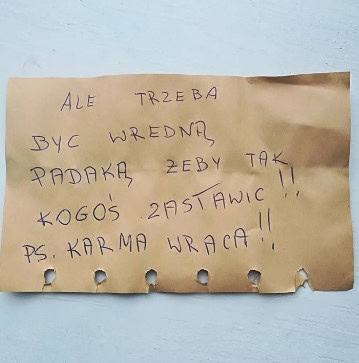 ALE TRZEBA
BYC WREDNĄ
PADAKĄ ZEBY TAK
KOGOŚ ZASTAWIC !!
PS. KARMA WRACA!!